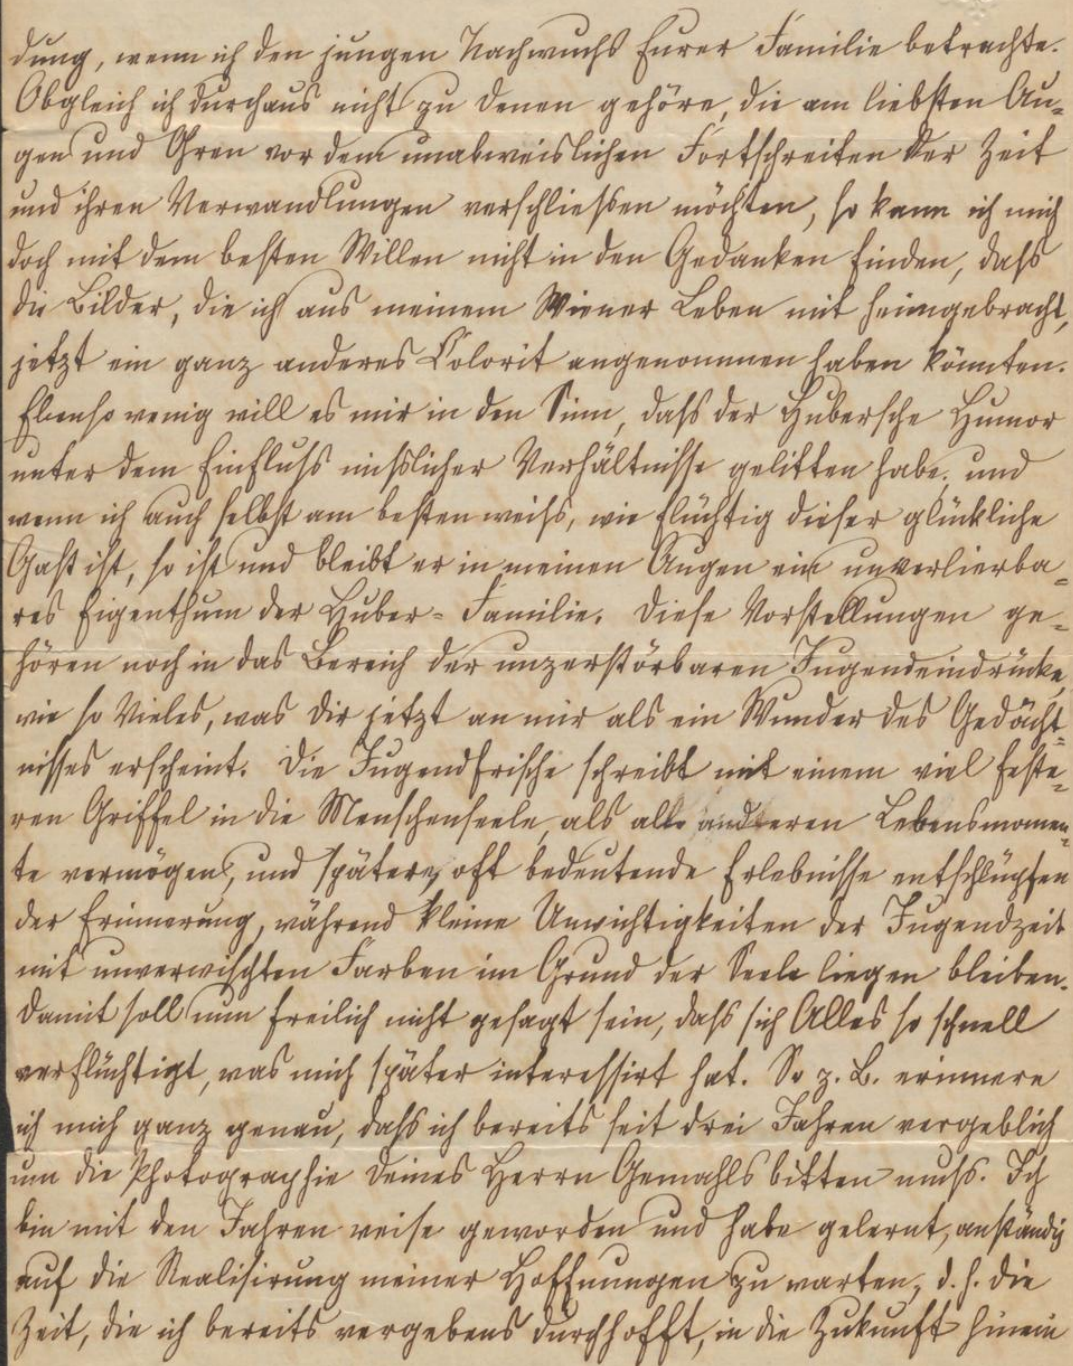 dung, wenn ich den jungen Nachwuchs Eurer Familie betrachte.
Obgleich ich durchaus nicht zu denen gehöre, die am liebsten Au-
gen und Ohren vor dem unabweislichen Fortschreiten der Zeit
und ihren Verwandlungen verschließen möchten, so kann ich mich
doch mit dem besten Willen nicht in den Gedanken finden, dass
die Bilder, die ich aus meinem Wiener Leben mit heimgebracht,
jetzt ein ganz anderes Colorit angenommen haben könnten.
Ebenso wenig will es mir in den Sinn, dass der Hubersche Humor
unter dem Einfluss misslicher Verhältnisse gelitten habe, und
wenn ich auch selbst am besten weiss, wie flüchtig dieser glückliche
Gast ist, so ist und bleibt er in meinen Augen ein unverlierba-
res Eigenthum der Huber-Familie. Diese Vorstellungen ge-
hören noch in das Bereich der unzerstörbaren Jugendeindrücke,
wie so Vieles, was Dir jetzt an mir als ein Wunder des Gedächt-
nisses erscheint. Die Jugendfrische schreibt mit einem viel feste-
ren Griffel in die Menschenseele, als alle anderen Lebensmomen-
te vermögen, und spätere, oft bedeutende Erlebnisse entschlüpfen
der Erinnerung, während kleine Unwichtigkeiten der Jugendzeit
mit unverwischten Farben im Grund der Seele liegen bleiben.
Damit soll nun freilich nicht gesagt sein, dass sich Alles so schnell
verflüchtigt, was mich später interessirt hat. So z. B. erinnere
ich mich ganz genau, dass ich bereits seit drei Jahren vergeblich
um die Photographie Deines Herrn Gemahls bitten muss. Ich
bin mit den Jahren weise geworden und habe gelernt, anständig
auf die Realisirung meiner Hoffnungen zu warten, d. h. die
Zeit, die ich bereits vergebens durchhofft, in die Zukunft hinein